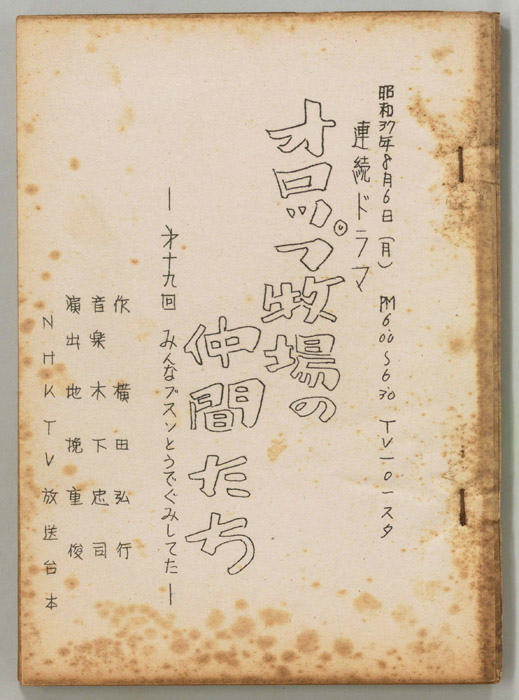 昭和37年8月6日(月) PM6.00~6.30 TV一〇一スタ
連続ドラマ
オロップ牧場の
仲間たち
―才十九回 みんなブスンとうでぐみしてた―
作 横田弘行
音楽 木下忠司
演出 地挽重俊
NHKTV放送台本